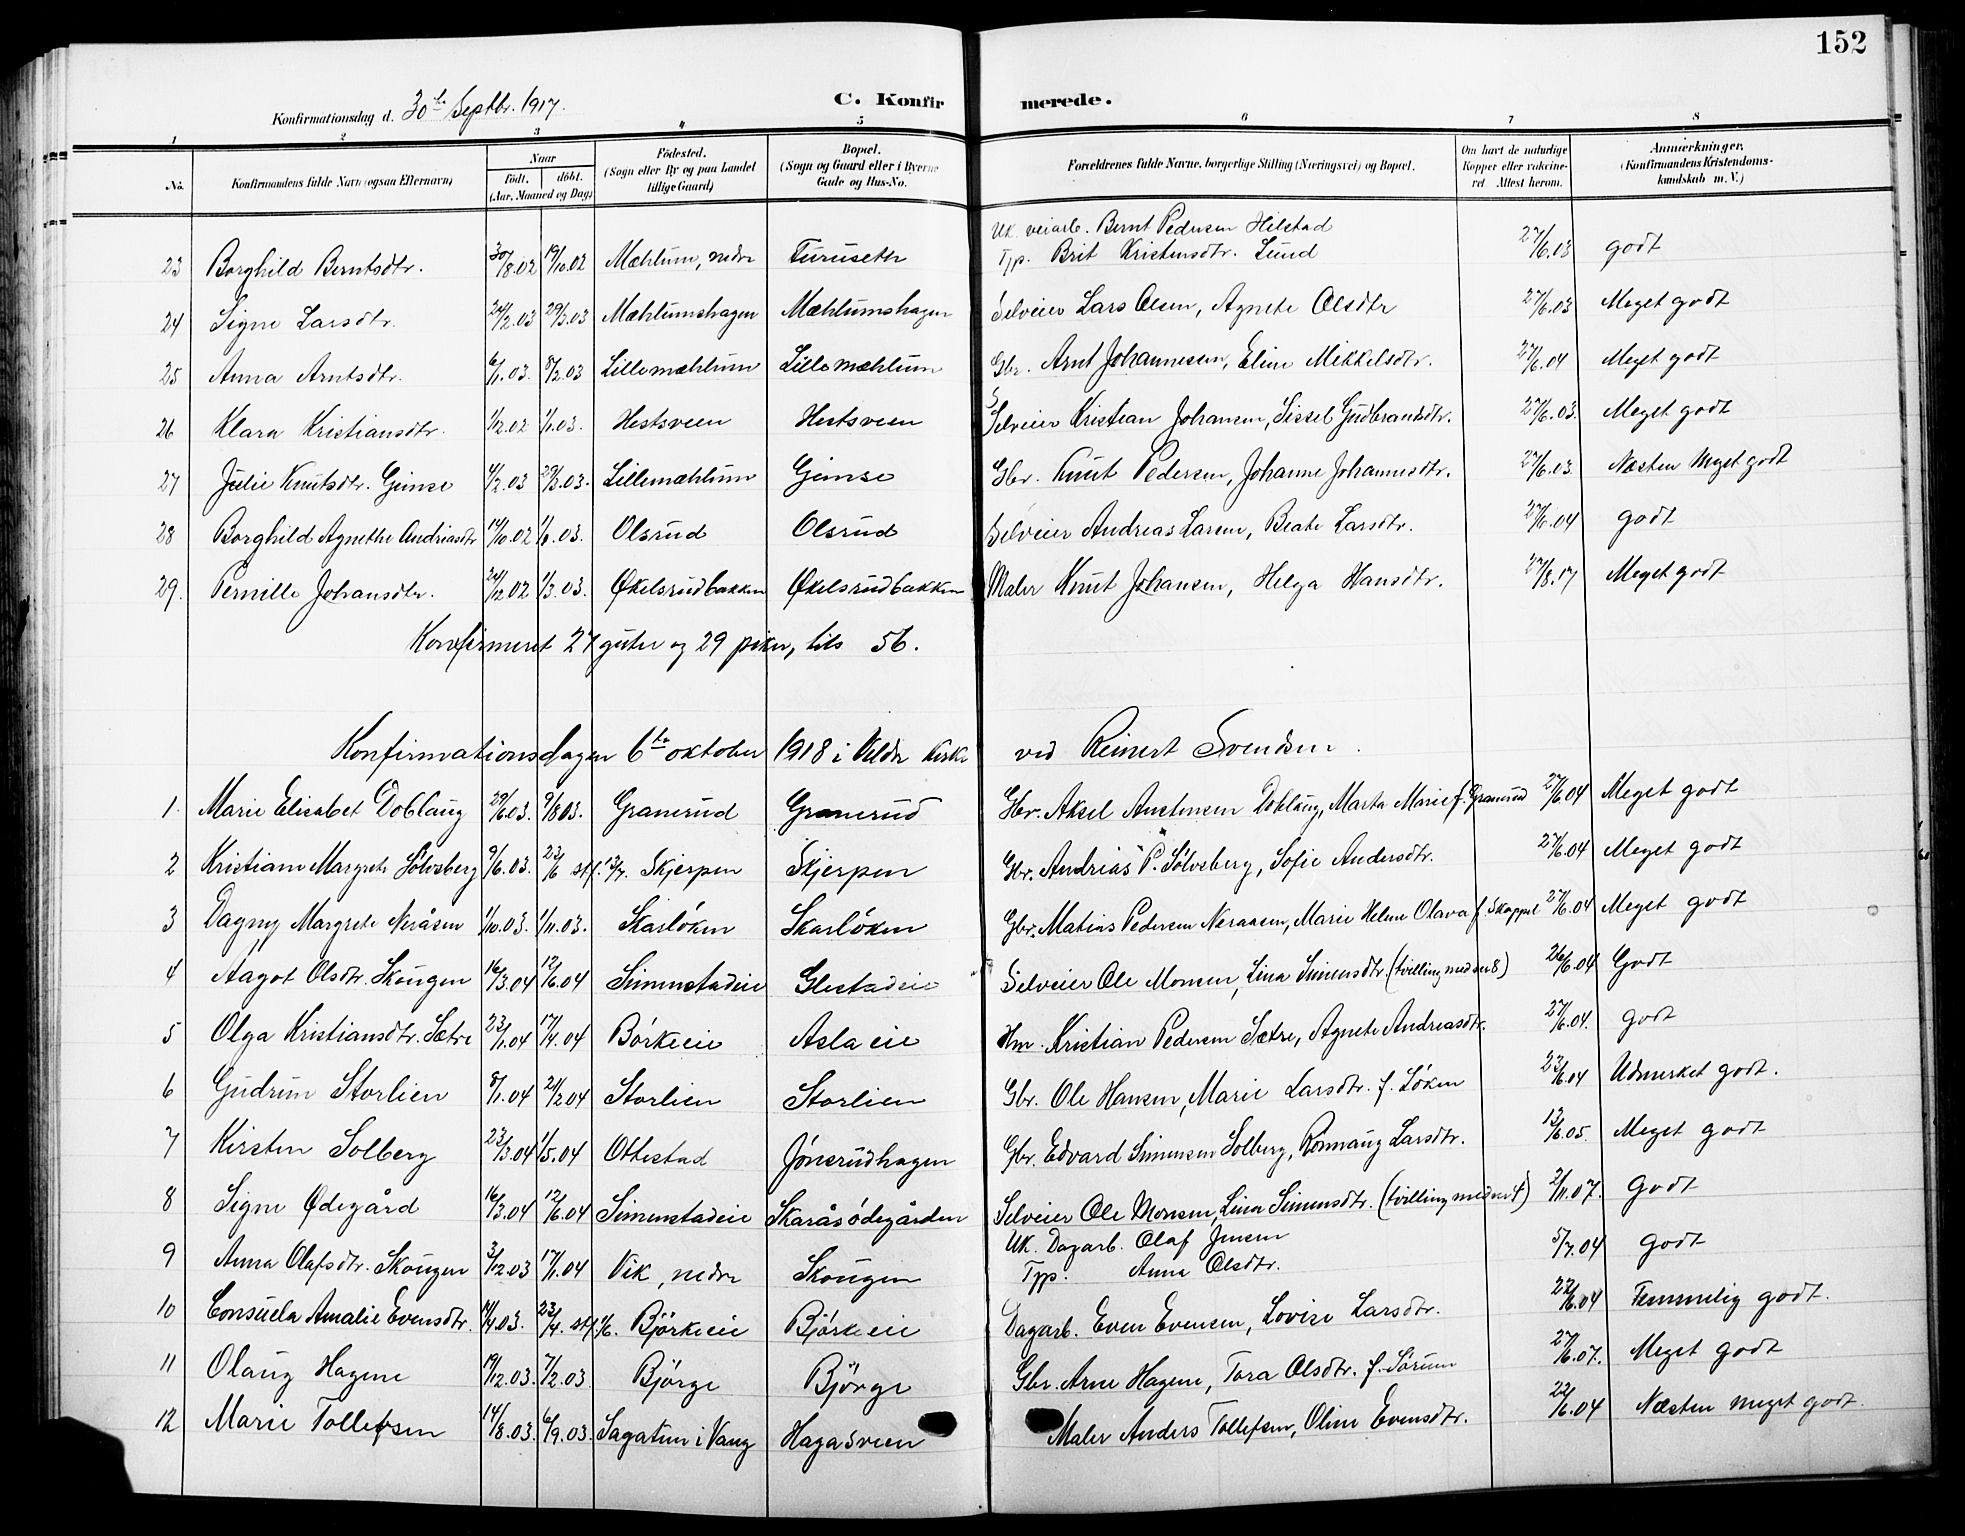 152
Konfirmationsdag d. 30te Septbr. 1917.
C. Konfirmerede.
1 2 3 4 5 6 7 8
No. Konfirmandens fulde Navn (ogsaa Efternavn) Naar födt. döbt. (Aar, Maaned og Dag) Födested. (Sogn eller By og paa Landet tillige Gaard) Bopæl. (Sogn og Gaard eller i Byerne Gade og Hus-No. Forældrenes fulde Navne, borgerlige Stilling (Næringsvei) og Bopæl. Om havt de naturlige Kopper eller vaccineret Attest herom. Anmærkninger. (Konfirmandens Kristendomskundskab m. V.)
Uk. veiarb. Bernt Pedersen Hilstad
23 Borghild Berntsdtr. 30/8.02 19/10.02 Mæhlum, nedre Furuseth Typ. Brit Kristensdtr. Lund 27/6.03 godt
24 Signe Larsdtr. 24/2.03 29/3.03 Mæhlumshagen Mæhlumshagen Selveier Lars Olsen, Agnete Olsdtr 27/6.03 Meget godt
25 Anna Arntsdtr. 6/1.03. 8/2.03 Lillemæhlum Lillemæhlum Gbr. Arnt Johannesen, Eline Mikkelsdtr. 27/6.04 Meget godt
26 Klara Kristiansdtr. 1/12.02 1/1.03. Hestsveen Hestsveen Selveier Kristian Johansen, Sissel Gudbrandsdtr. 27/6.03. Meget godt
27 Julie Knutsdtr. Gimse 4/2.03 29/3.03. Lillemæhlum Gimse Gbr. Knut Pedersen, Johanne Johannesdtr. 27/6.03. Næsten Meget godt
28 Borghild Agnethe Andreasdtr 14/10.02 1/6.03. Olsrud Olsrud Selveier Andreas Larsen, Beate Larsdtr. 27/6.04 godt
29. Pernille Johansdtr. 24/12.02 1/3.03. Økelsrudbakken Økelsrudbakken Maler Knut Johansen, Helga Hansdtr. 27/8.17 Meget godt
Konfirmeret 27 guter og 29 piker, tils 56.
Konfirmationsdagen 6te oktober 1918 i Veldre Kirke ved Reinert Svendsen.
1. Marie Elisabet Doblaug 29/6.03. 9/8 03. Granerud Granerud Gbr. Aksel Austensen Doblaug, Marta Marie f. Granerud 27/6.04 Meget godt
2 Kristiane Margrete Sølvsberg 9/6.03. 23/6 stf. 12/7. Skjerpen Skjerpen Gbr. Andreas P. Sølvsberg, Sofie Andersdtr. 27/6.04 Meget godt
3 Dagny Margrete Neråsen 1/10.03. 1/11.03. Skarløken Skarløken Gbr. Matias Pedersen Neraasen, Marie Helene Olava f. Skappel 27/6.04 Meget godt
4 Aagot Olsdtr. Skougen 16/3.04 12/6.04 Simenstadeie Glestadeie Selveier Ole Monsen, Lina Simensdtr. (tvilling med nr 8) 26/6.04 Godt
5 Olga Kristiansdtr. Sætre 23/1.04 17/4.04 Børkeeie Asla eie Hm. Kristian Pedersen Sætre, Agnete Andreasdtr. 27/6.04. godt
6 Gudrun Storlien 8/1.04 21/2 04 Storlien Storlien Gbr. Ole Hansen, Marie Larsdtr. f. Løken 23/6.04 Udmerket godt.
7 Kirsten Solberg 23/3.04 1/5.04 Ottestad Jønsrudhagen Gbr. Edvard Simensen Solberg, Rønnaug Larsdtr. 13/6.05. Meget godt
8 Signe Ødegård 16/3.04 12/6.04 Simenstadeie Skaråsødegården Selveier Ole Monsen, Lina Simensdtr. (tvilling med nr 4) 2/11.07. godt
Uk. Dagarb. Olaf Jensen
9 Anna Olafsdtr. Skougen 3/12.03 17/1.04 Vik, nedre Skougen Typ. Anna Olsdtr. 5/7.04 godt
10 Consuela Amalie Evensdtr. 14/4.03. 23/4. stf. 1/6. Björkeeie Björkeeie Dagarb. Even Evensen, Lovise Larsdtr. 22/6.04 Temmelig godt.
11 Olaug Hagene 19/12.03. 7/2.03. Bjørge Bjørge Gbr. Arne Hagene, Tora Olsdtr. f. Sørum 27/6.07. Meget godt
12 Marie Tollefsen 14/8.03. 6/9.03. Sagatun i Vang Hagasveen Maler Anders Tollefsen, Oline Evensdtr. 22/6.04 Næsten meget godt.